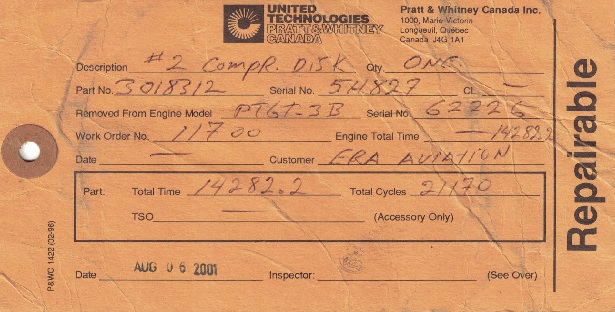 UNITED
TECHNOLOGIES
PRATT&WHITNEY
CANADA
Pratt & Whitney Canada Inc.
1000, Marie-Victorin
Longueuil, Québec
Canada J4G 1A1
Description #2 COMPR. DISK Qty ONE
Part No. 3018312 Serial No. 5H827 Cl. —
Removed From Engine Model PT6T-3B Serial No 62226
Work Order No. 11700 Engine Total Time — 14282.2
Date — Customer ERA AVIATION
Part: Total Time 14282.2 Total Cycles 21170
TSO — (Accessory Only)
Date AUG 06 2001 Inspector: (See Over)
Repairable
P&WC 1422 (02-96)